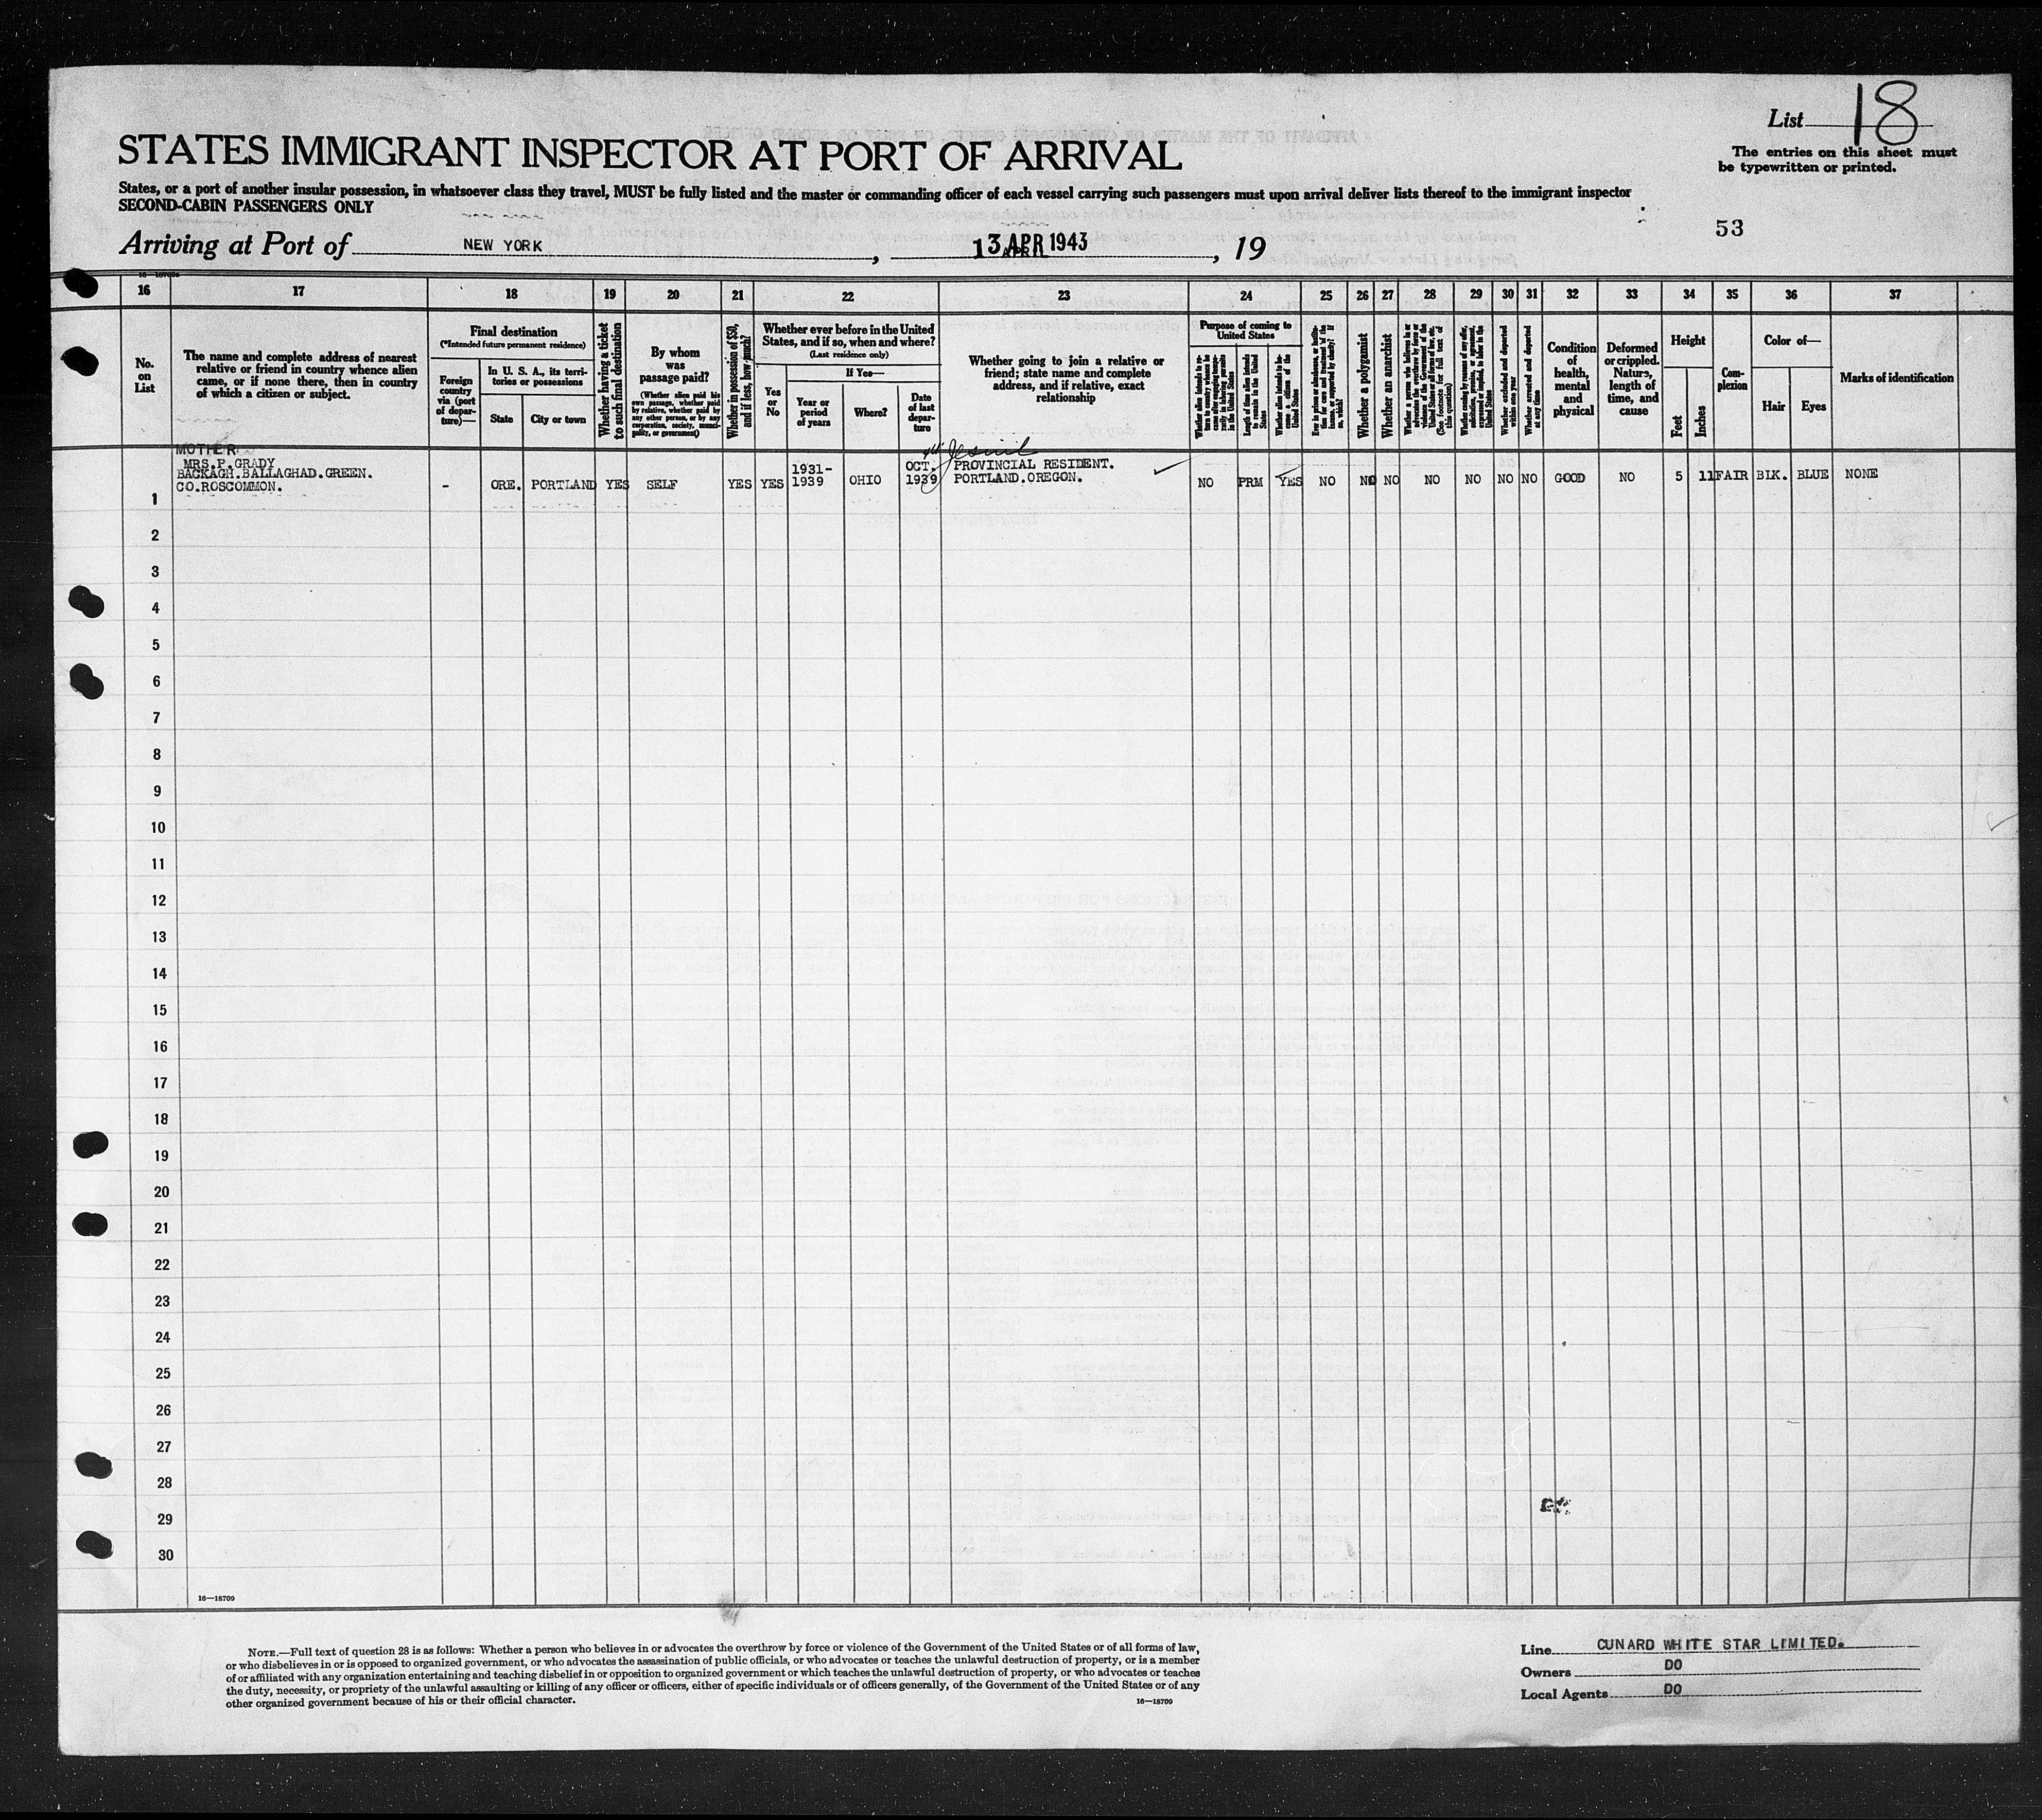 List 18
The entries on this sheet must
be typewritten or printed.
STATES IMMIGRANT INSPECTOR AT PORT OF ARRIVAL
States, or a port of another insular possession, in whatsoever class they travel, MUST be fully listed and the master or commanding officer of each vessel carrying such passengers must upon arrival deliver lists thereof to the immigrant inspector
SECOND-CABIN PASSENGERS ONLY
53
Arriving at Port of NEW YORK, 13 APR 1943, 19
16 17 18 19 20 21 22 23 24 25 26 27 28 29 30 31 32 33 34 35 36 37
No. on List
The name and complete address of nearest
relative or friend in country whence alien
came, or if none there, then in country
of which a citizen or subject.
Final destination
(*Intended future permanent residence)
Foreign country via (port of depar-ture)—
In U. S. A., its terri-
tories or possessions
State
City or town
Whether having a ticket to such final destination
By whom
was
passage paid?
(Whether alien paid his own passage, whether paid by relative, whether paid by any other person, or by any corporation, society, munici-pality, or government)
Whether in possession of $50, and if less, how much?
Whether ever before in the United
States, and if so, when and where?
(Last residence only)
Yes or No
If Yes—
Year or period of years
Where?
Date of last depar-ture
Whether going to join a relative or
friend; state name and complete
address, and if relative, exact
relationship
Purpose of coming to
United States
Length of time alien intends to remain in the United States
Whether alien intends to be-come a citizen of the United States
Whether a polygamist
Whether an anarchist
Whether excluded and deported within one year
Whether arrested and deported at any time
Condition of health, mental and physical
Deformed or crippled. Nature, length of time, and cause
Height
Feet
Inches
Com-plexion
Color of—
Hair
Eyes
Marks of identification
MOTHER
MRS.P.GRADY
BACKAGH.BALLAGHAD.GREEN.
CO.ROSCOMMON.
1 - ORE. PORTLAND YES SELF YES YES 1931-1939 OHIO OCT. 1939
Jesuit
PROVINCIAL RESIDENT.
PORTLAND.OREGON.
NO PRM YES NO NO NO NO NO NO NO GOOD NO 5 11 FAIR BLK. BLUE NONE
2
3
4
5
6
7
8
9
10
11
12
13
14
15
16
17
18
19
20
21
22
23
24
25
26
27
28
29
30
16—18709
NOTE.—Full text of question 28 is as follows: Whether a person who believes in or advocates the overthrow by force or violence of the Government of the United States or of all forms of law,
or who disbelieves in or is opposed to organized government, or who advocates the assassination of public officials, or who advocates or teaches the unlawful destruction of property, or is a member
of or affiliated with any organization entertaining and teaching disbelief in or opposition to organized government or which teaches the unlawful destruction of property, or who advocates or teaches
the duty, necessity, or propriety of the unlawful assaulting or killing of any officer or officers, either of specific individuals or of officers generally, of the Government of the United States or of any
other organized government because of his or their official character.
16—18709
Line CUNARD WHITE STAR LIMITED.
Owners DO
Local Agents DO